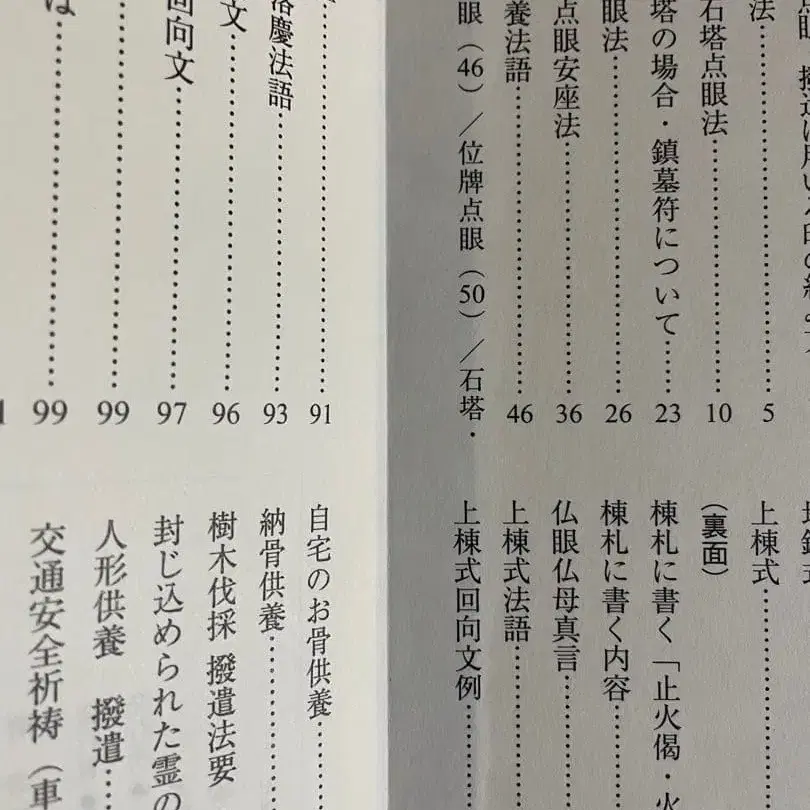 点眼
法……5
石塔点眼法……10
塔の場合・鎮墓符について……23
眼法……26
点眼安座法……36
養法語……46
眼(46)／位牌点眼(50)／石塔・
上棟式……
(裏面)
棟札に書く「止火偈・火
棟札に書く内容……
仏眼仏母真言……
上棟式法語……
上棟式回向文例……
……91
落慶法語……93
文……96
回向文……97
……99
は……99
自宅のお骨供養……
納骨供養……
樹木伐採 撥遣法要
封じ込められた霊の
人形供養 撥遣……
交通安全祈祷(車